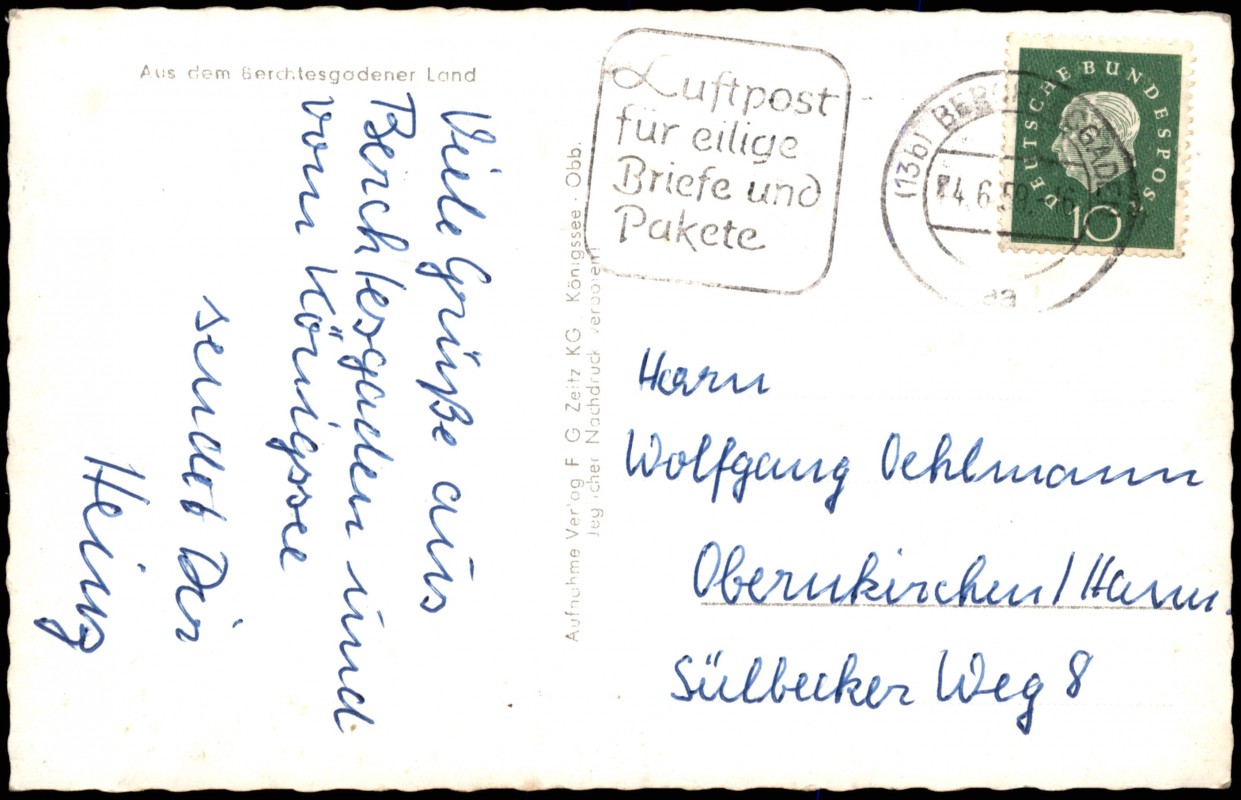 Aus dem Berchtesgadener Land
Viele Grüße aus
Berchtesgaden und
vom Königssee
sendet Dir
Heinz
Aufnahme Verlag F G Zeitz KG Königssee · Obb.
Jeglicher Nachdruck verboten!
Luftpost
für eilige
Briefe und
Pakete
(13b) BERCHTESGADEN
4.6.59.-16
aa
DEUTSCHE BUNDESPOST
10
Herrn
Wolfgang Oehlmann
Obernkirchen/Hann.
Sülbecker Weg 8